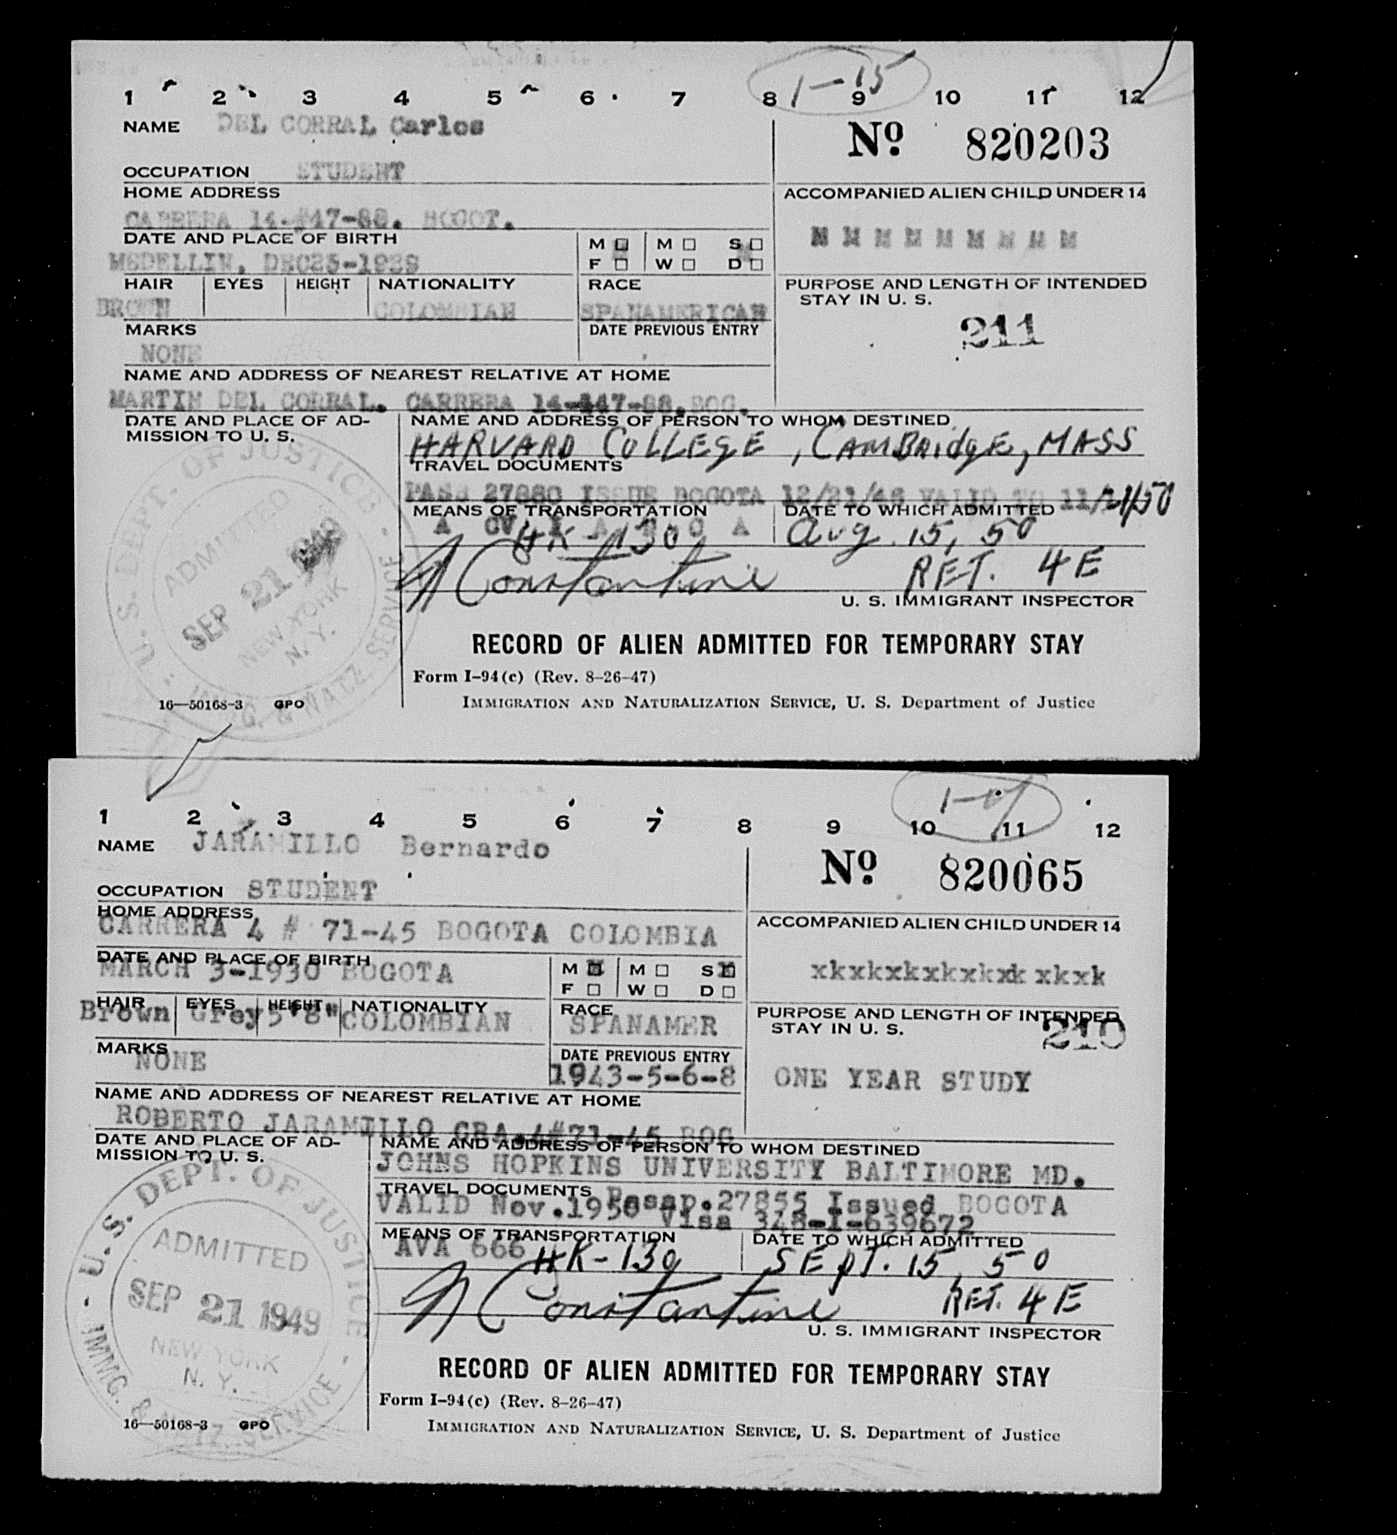 1 2 3 4 5 6 7 8 9 10 11 12
1-15
NAME DEL CORRAL Carlos
Nº 820203
OCCUPATION STUDENT
HOME ADDRESS
CARRERA 14-#47-88. BOGOT.
ACCOMPANIED ALIEN CHILD UNDER 14
M M M M M M M M M
DATE AND PLACE OF BIRTH
MEDELLIN. DEC25-1929
M □ M □ S □
F □ W □ D □
HAIR EYES HEIGHT NATIONALITY RACE
BROWN COLOMBIAN SPANAMERICAN
PURPOSE AND LENGTH OF INTENDED
STAY IN U. S.
211
MARKS DATE PREVIOUS ENTRY
NONE
NAME AND ADDRESS OF NEAREST RELATIVE AT HOME
MARTIN DEL CORRAL. CARRERA 14-#47-88.BOG.
DATE AND PLACE OF AD-
MISSION TO U. S.
NAME AND ADDRESS OF PERSON TO WHOM DESTINED
HARVARD COLLEGE, CAMBRIDGE, MASS
TRAVEL DOCUMENTS
PASS 27880 ISSUE BOGOTA 12/21/48 VALID TO 11/21/50
MEANS OF TRANSPORTATION DATE TO WHICH ADMITTED
HK-130 Aug. 15, 50
N Constantine RET. 4E
U. S. IMMIGRANT INSPECTOR
U. S. DEPT. OF JUSTICE
ADMITTED
SEP 21 1949
NEW YORK
N. Y.
IMMIG. & NATZ. SERVICE
RECORD OF ALIEN ADMITTED FOR TEMPORARY STAY
Form I-94(c) (Rev. 8-26-47)
16—50168-3 GPO
IMMIGRATION AND NATURALIZATION SERVICE, U. S. Department of Justice
1 2 3 4 5 6 7 8 9 10 11 12
NAME JARAMILLO Bernardo
Nº 820065
OCCUPATION STUDENT
HOME ADDRESS
CARRERA 4 # 71-45 BOGOTA COLOMBIA
ACCOMPANIED ALIEN CHILD UNDER 14
xkxkxkxkxkxk xkxk
DATE AND PLACE OF BIRTH
MARCH 3-1930 BOGOTA
M □ M □ S □
F □ W □ D □
HAIR EYES HEIGHT NATIONALITY RACE
Brown Grey 5'8" COLOMBIAN SPANAMER
PURPOSE AND LENGTH OF INTENDED
STAY IN U. S.
210
ONE YEAR STUDY
MARKS DATE PREVIOUS ENTRY
NONE 1943-5-6-8
NAME AND ADDRESS OF NEAREST RELATIVE AT HOME
ROBERTO JARAMILLO CRA.4#71-45 BOG
DATE AND PLACE OF AD-
MISSION TO U. S.
NAME AND ADDRESS OF PERSON TO WHOM DESTINED
JOHNS HOPKINS UNIVERSITY BALTIMORE MD.
TRAVEL DOCUMENTS Pasap.27855 Issued BOGOTA
VALID Nov.1950 Visa 348-I-639672
MEANS OF TRANSPORTATION DATE TO WHICH ADMITTED
AVA 666 HK-130 SEPT. 15, 50
N Constantine RET. 4E
U. S. IMMIGRANT INSPECTOR
U. S. DEPT. OF JUSTICE
ADMITTED
SEP 21 1949
NEW YORK
N. Y.
IMMIG. & NATZ. SERVICE
RECORD OF ALIEN ADMITTED FOR TEMPORARY STAY
Form I-94(c) (Rev. 8-26-47)
16—50168-3 GPO
IMMIGRATION AND NATURALIZATION SERVICE, U. S. Department of Justice